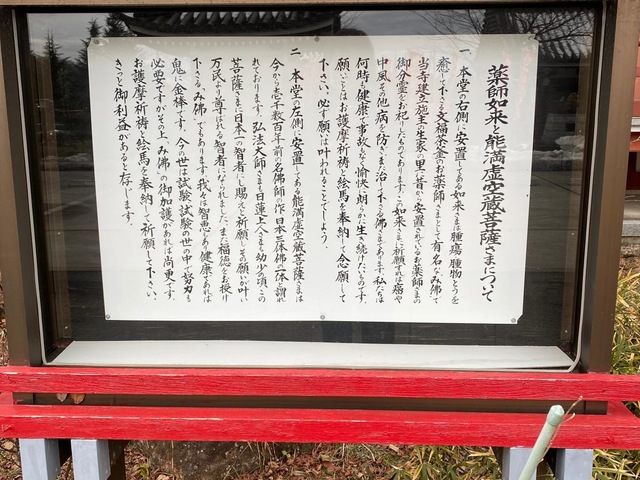 薬師如来と能満虚空蔵菩薩さまについて
一、本堂の右側に安置してある如来さまは腫瘍、腫物とうを
癒して下さる文福茶釜のお薬師さまとして有名なみ佛で
当寺建立施主の生家の里に昔から安置されているお薬師さまの
御分霊をお祀りしたものであります。この如来さまに祈願すれば癌や
中風その他の病を防ぎ、また治して下さる佛さまであります。私たちは
何時も健康で事故もなく愉快に朗らかに生き続けたいものです。
願いごとはお護摩祈祷と絵馬を奉納して念願して
下さい。必ず願いは叶われることでしょう。
二、本堂の左側に安置してある能満虚空蔵菩薩さまは
今から壱千数百年前の名佛師の作、日本三体佛の一体と謂わ
れております。弘法大師さまも日蓮上人さまも幼少の頃この
菩薩さまに日本一の智者にし賜えと祈願し、その願いが叶い
万民より尊ばれる智者になられました。また福徳をお授け
下さるみ佛でもあります。我々人は智恵があり健康であれば
鬼に金棒です。今の世は試験、試験の世の中で努力も
必要ですがその上、み佛の御加護があれば尚更です。
お護摩祈祷と絵馬を奉納して祈願して下さい。
きっと御利益があると存じます。